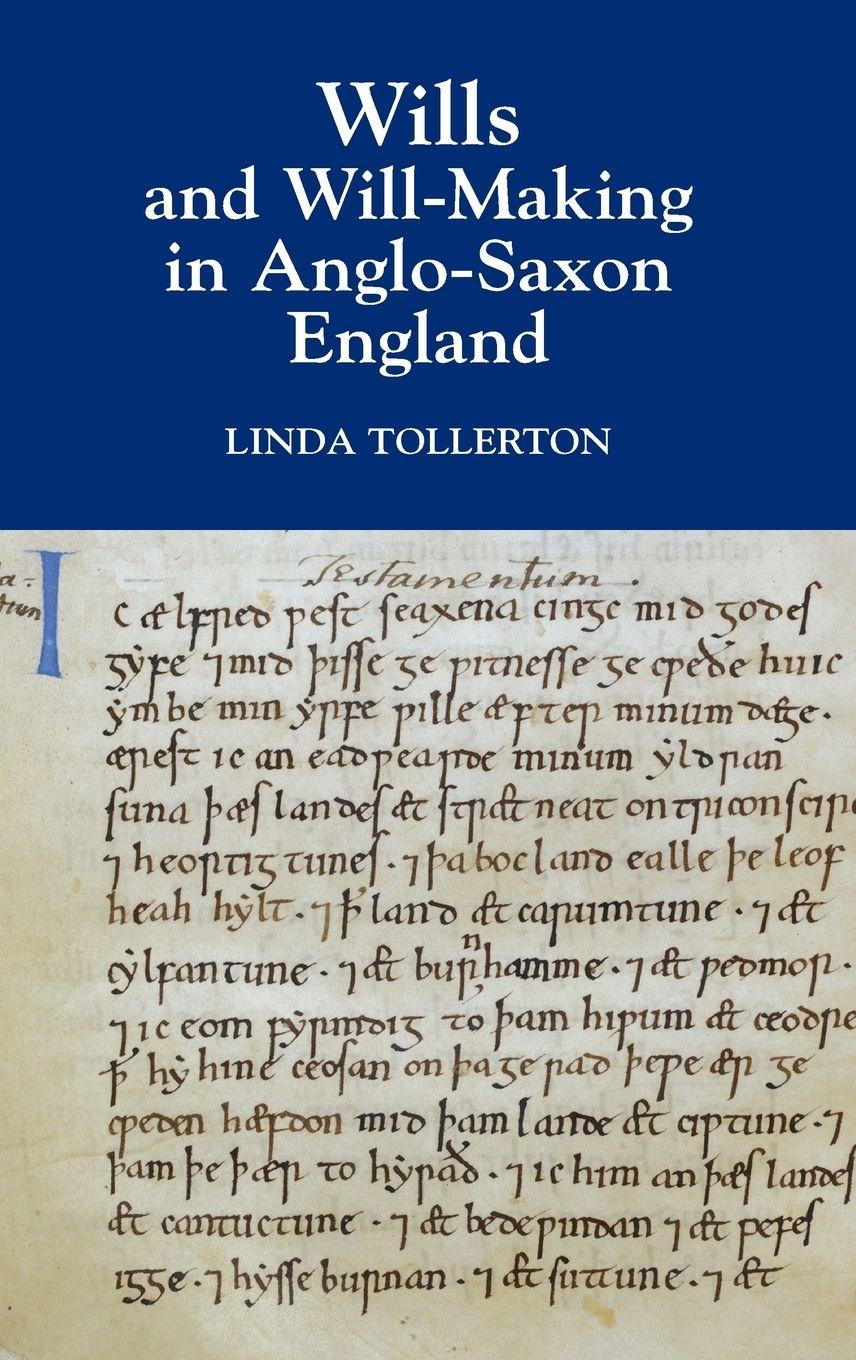 Wills
and Will-Making
in Anglo-Saxon
England
LINDA TOLLERTON
Testamentum.
I
C ælfred ƿest seaxena cingc mid godes
gẏfe ⁊ mid þisse ge ƿitnesse ge cƿeðe hu ic
ẏmbe min ẏrfe ƿille æfter minum dæge·
ærest ic an eadƿearde minum ẏldran
suna þæs landes æt strætneat on triconscire
⁊ heortigtunes·⁊ þa bocland ealle þe leof
heah hẏlt·⁊ ꝥ land æt carumtune·⁊ æt
cẏlfantune·⁊ æt burnhamme·⁊ æt ƿedmor·
⁊ ic eom fẏrmdig to þam hiƿum æt ceodre
ꝥ hẏ hine ceosan on þa ge rad þe ƿe ær ge
cƿeden hæfdon mid þam lande æt ciƿtune·⁊
þam þe þær to hẏrað·⁊ ic him an þæs landes
æt cantuctune·⁊ æt bedeƿindan ⁊ æt ƿefes
igge·⁊ hẏsseburnan·⁊ æt suttune·⁊ æt